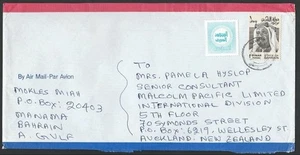 By Air Mail-Par Avion
MOKLES MIAH
P.O.Box: 20403
MANAMA
BAHRAIN
A. GULF
TO
MRS. PAMELA HYSLOP
SENIOR CONSULTANT
MALCOLM PACIFIC LIMITED
INTERNATIONAL DIVISION
5TH FLOOR
70 SYMONDS STREET
P.O. Box: 6219, WELLESLEY ST.
AUCKLAND. NEW ZEALAND